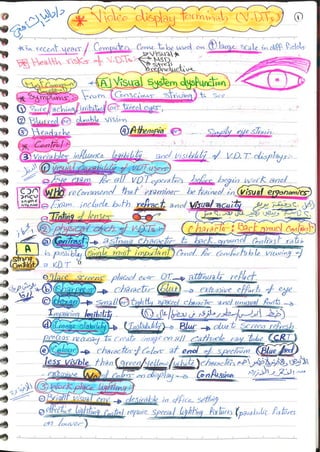 * Video display terminals (V.D.Ts) *
* in recent years / Computers Come to be used on ① large scale in diff fields
Health risks of V.D.Ts → Visual *
→ MSD
→ stress
→ Reproductive
Ⓐ Visual System dysfunction
* Symptoms: From Conscious Straining to see
① tired eyes.
② Blurred or double vision
③ Headache ④ Asthenopia Simply eye strain
* Control
3 Variables influence legibility and visibility of V.D.T display
① Visual Capability of VDT users
→ Eye exam for all VDT operators before begin work and
WHO recommend that examiner be trained in Visual ergonomics
→ Exam include both refract. and Visual acuity
→ Tinting of lenses
② physical aspects of VDTs (character: Back ground Contrast)
ⓐ Contrast → a strong character to back ground Contrast ratio
is possibly Single most important Cond for comfortable viewing of
a VDT
A
strong
Contrast
→ place screens placed over VDT → attenuate reflect.
ⓑ Sharpness → character Blur → excessive efforts of eye
ⓒ design → Small or tightly spaced character and unusual fonts →
Impairing legibility
ⓓ Image stability → Instability → Blur → due to Screen refresh
process necessary to create image on all cathode ray tube (CRT)
ⓔ Colour → character of Colors at end of spectrum Blue / red
less visible than green / yellow / white character
→ excessive No. of Colors on display → Confusion
③ Work place lighting
ⓐ → desirable in office setting
ⓑ effective lighting Control require special lighting fixtures (parabolic fixtures
or louver)